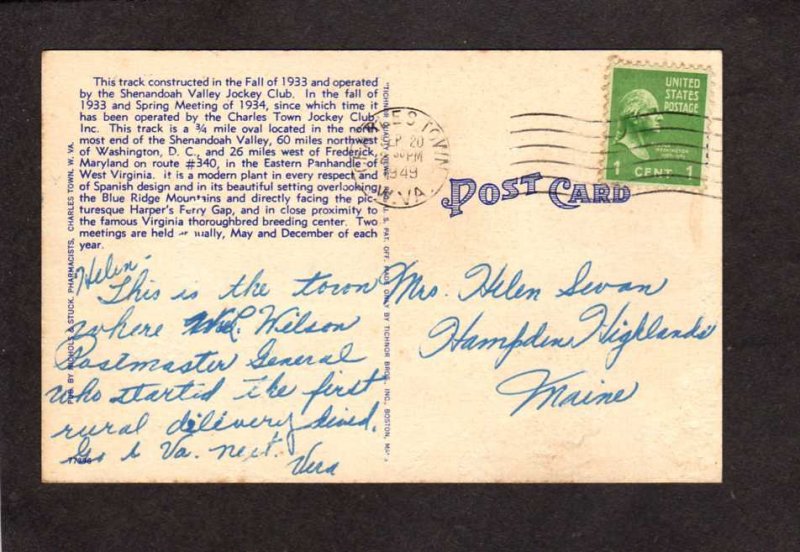 This track constructed in the Fall of 1933 and operated
by the Shenandoah Valley Jockey Club. In the fall of
1933 and Spring Meeting of 1934, since which time it
has been operated by the Charles Town Jockey Club,
Inc. This track is a ¾ mile oval located in the north
most end of the Shenandoah Valley, 60 miles northwest
of Washington, D. C., and 26 miles west of Frederick,
Maryland on route #340, in the Eastern Panhandle of
West Virginia. it is a modern plant in every respect and
of Spanish design and in its beautiful setting overlooking
the Blue Ridge Mountains and directly facing the pic-
turesque Harper's Ferry Gap, and in close proximity to
the famous Virginia thoroughbred breeding center. Two
meetings are held annually, May and December of each
year.
"Helen"
This is the town
where Wilson
Postmaster General
who started the first
rural delivery lived.
Go Va. next.
Vera
PUB. BY NICHOLS & STUCK, PHARMACISTS, CHARLES TOWN, W. VA.
77394
"TICHNOR QUALITY VIEWS," REG. U. S. PAT. OFF. MADE ONLY BY TICHNOR BROS., INC., BOSTON, MASS.
CHARLES TOWN
SEP 20
PM
1949
W.VA.
POST CARD
UNITED
STATES
POSTAGE
1 CENT 1
Mrs. Helen Swan
Hampden Highlands
Maine